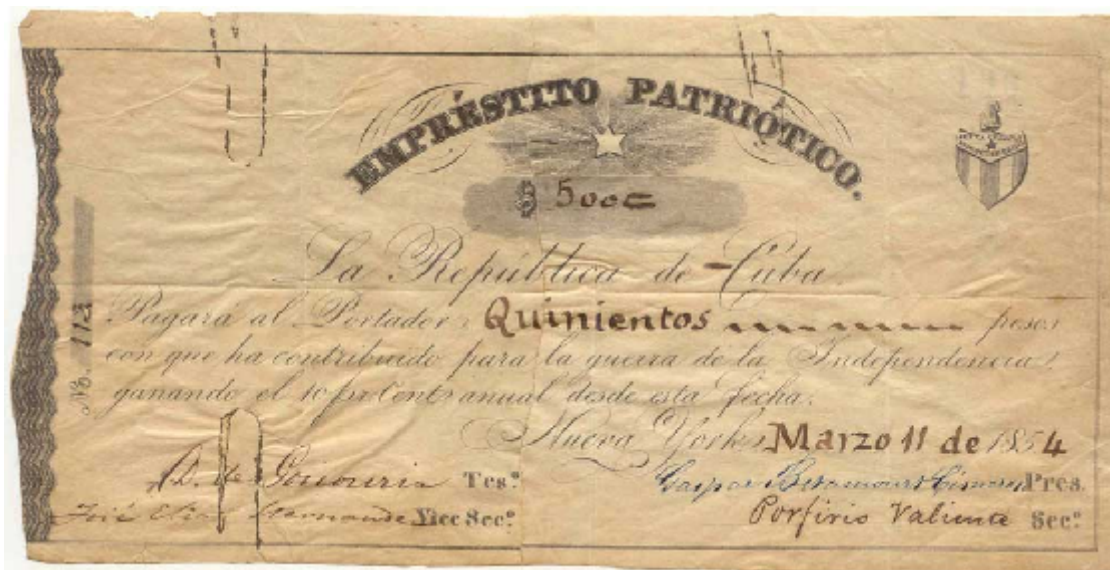 EMPRÉSTITO PATRIÓTICO.
$ 500=
La República de Cuba.
No. 113
Pagará al Portador Quinientos pesos
con que ha contribuido para la guerra de la Independencia
ganando el 10 pr Cento anual desde esta fecha.
Nueva York Marzo 11 de 1854
D. de Goicouria Teso.
Gaspar Betancourt Cisneros Pres.
José Elias Hernandez Vice Seco.
Porfirio Valiente Seco.